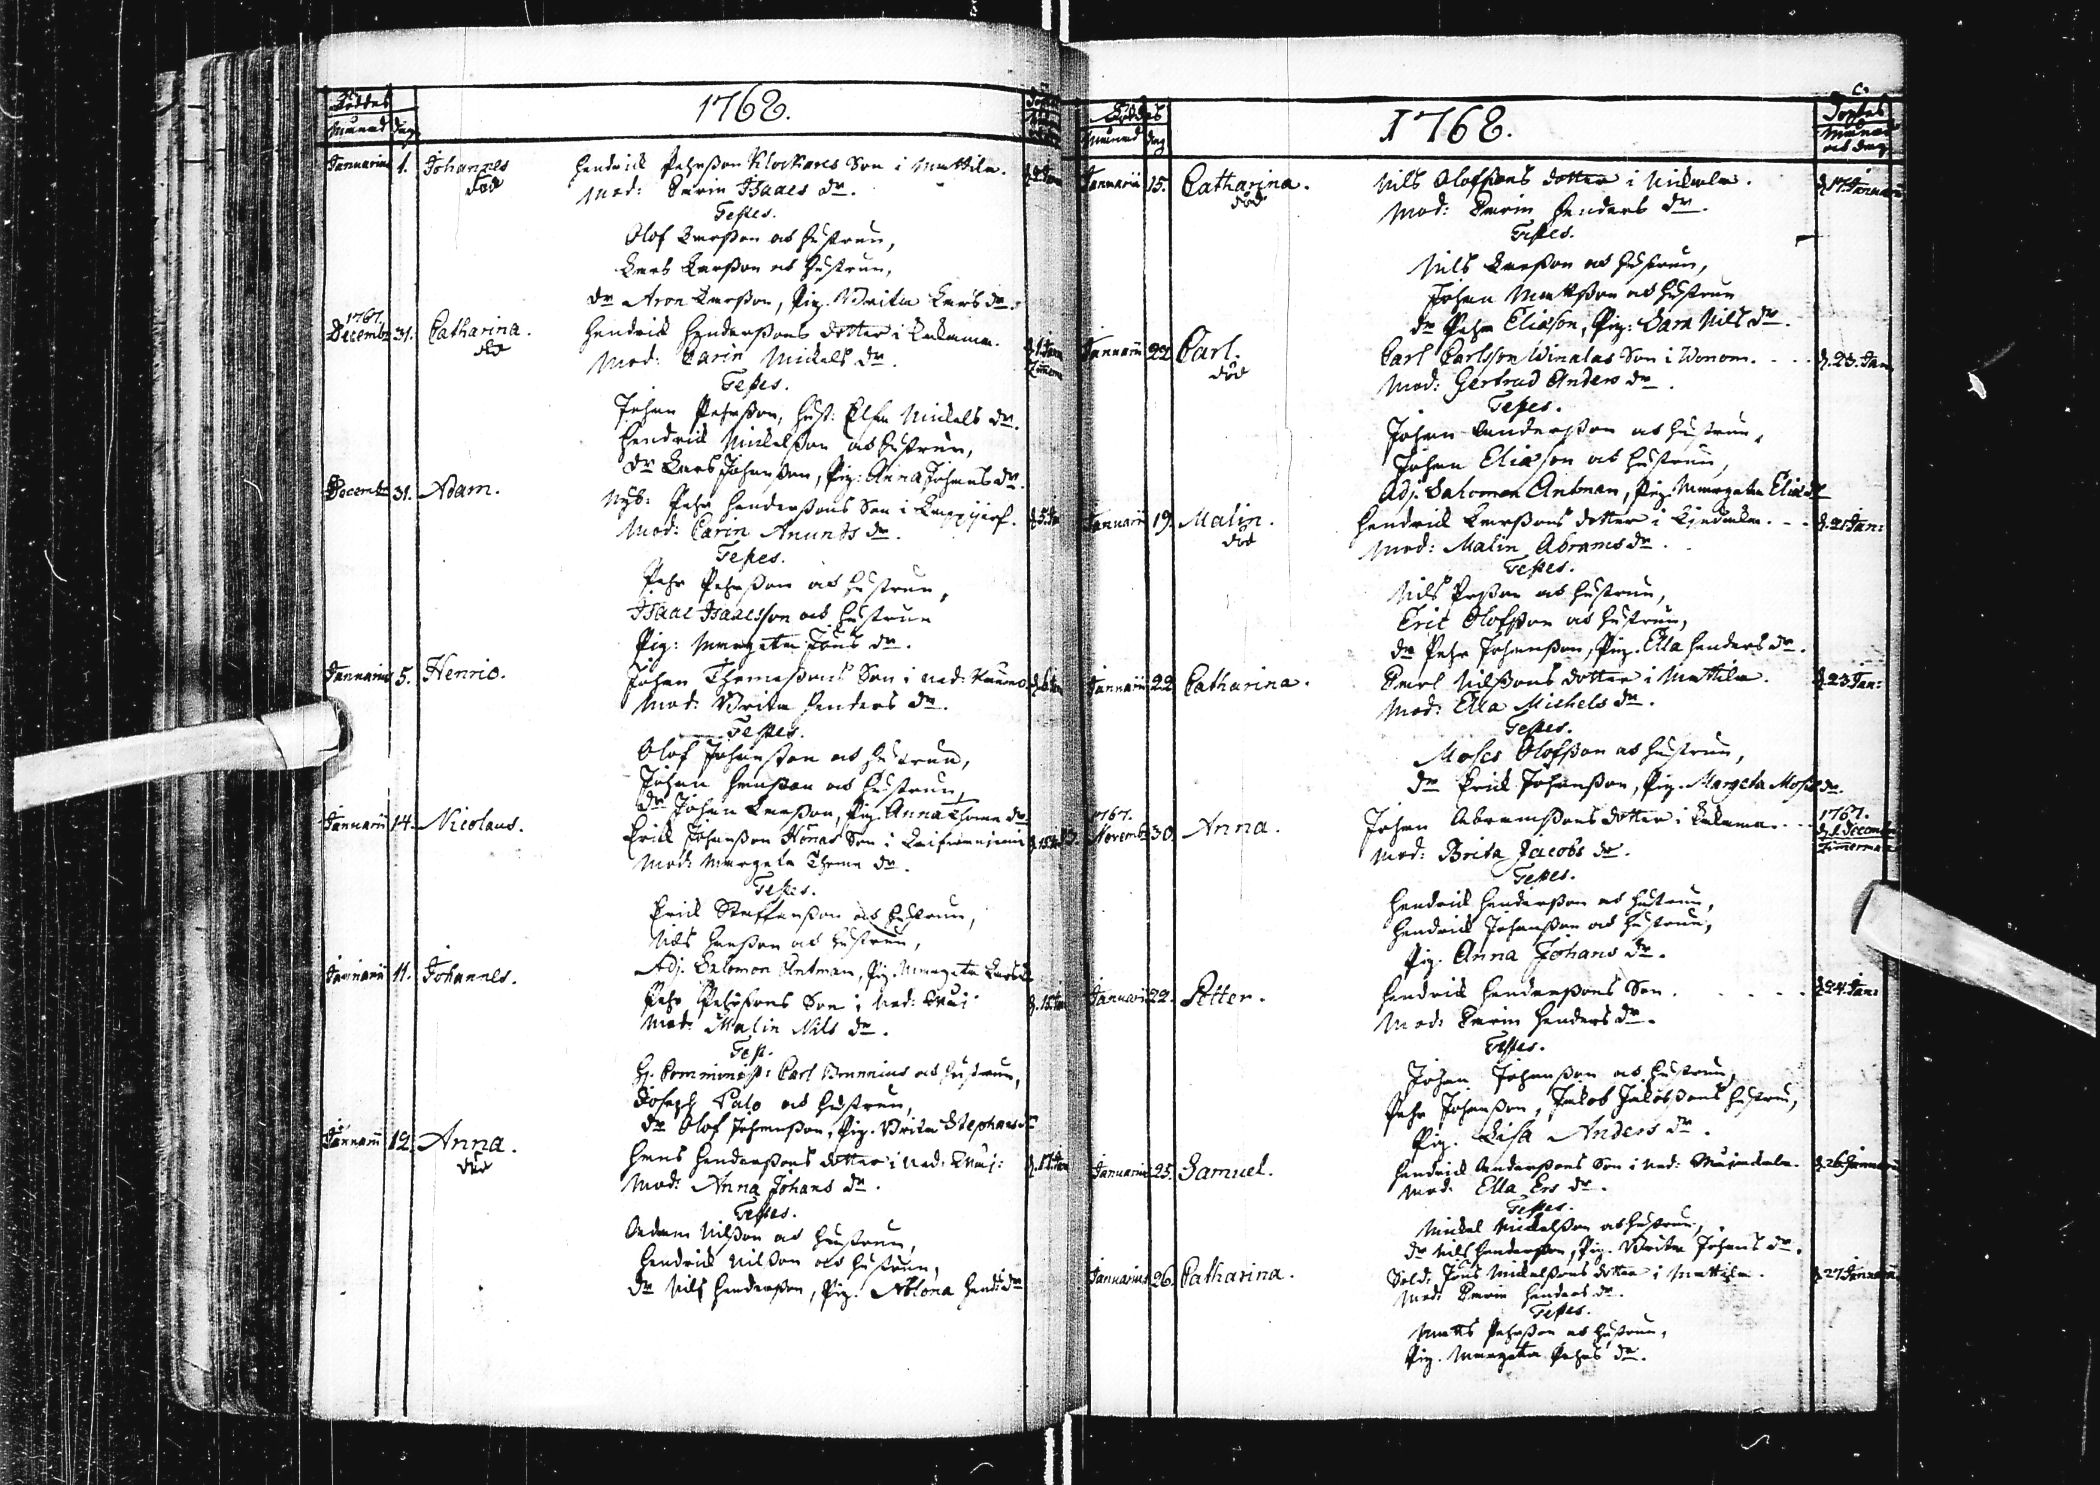 Föddes
Månad dag
1768.
Januarius 1. Johannes Hendrick Pehrßon Klockares Son i Mattila.
död Mod: Carin Isaacs dr.
Testes.
Olof Larßon och Hustrun,
Lars Larßon och Hustrun,
dr Aron Larßon, Pig. Brita Lars dr.
1767.
Decembr 31. Catharina. Hendrick Henderßons dotter i
död Mod: Carin Mickels dr.
Testes.
Johan Pehrßon, Hust: Elsa Mickels dr.
Hendrick Mickelßon och Hustrun,
dr Lars Johanßon, Pig: Anna Johans dr.
Decembr 31. Adam. Nyb: Pehr Henderßons Son i
Mod: Carin Anunds dr.
Testes.
Pehr Pehrßon och Hustrun,
Isaac Isaacsson och Hustrun
Pig: Margeta Jöns dr.
Januarius 5. Henric. Johan Thomaßons Son i Ned:
Mod: Brita Henders dr.
Testes.
Olof Johanßon och Hustrun,
Johan Hanßon och Hustrun,
dr Johan Larßon, Pig. Anna Thoma dr
Januarii 14. Nicolaus. Erick Johanßon Honas Son i
Mod: Margeta Thoma dr.
Testes.
Erick Staffanßon och Hustrun,
Nils Hanßon och Hustrun,
Adj. Salomon Antman, Pig. Margeta Lars dr
Januarii 11. Johannes. Pehr Pehrßons Son i Ned:
Mod: Malin Nils dr.
Test.
Hr. Comminist: Carl Brunnius och Hustrun,
Joseph Palo och Hustrun,
dr Olof Johanßon, Pig. Brita Stephans dr
Januarii 12. Anna. Hans Henderßons dotter i Ned:
död Mod: Anna Johans dr.
Testes.
Adam Nilßon och Hustrun,
Hendrick Nilßon och Hustrun,
dr Nils Henderßon, Pig. Ablona Hend: dr
Föddes
Månad dag
1768.
Döptes
Månad
och dag
Januarii 15. Catharina. Nils Olofßons dotter i Nickala. d. 17. Januarii
död Mod: Carin Henders dr.
Testes.
Nils Larßon och Hustrun,
Johan Mattßon och Hustrun
dr Pehr Eliasson, Pig: Sara Nils dr.
Januarii 22 Carl. Carl Carlsson Winikas Son i Wonom. d. 23. Jan
död Mod: Gertrud Anders dr.
Testes.
Johan Anderßon och Hustrun,
Johan Eliasson och Hustrun,
Adj. Salomon Antman, Pig. Margeta Elias dr
Januarii 19. Malin. Hendrick Larßons dotter i d. 21 Jan:
död Mod: Malin Abrams dr.
Testes.
Nils Perßon och Hustrun,
Eric Olofßon och Hustrun,
dr Pehr Johanßon, Pig. Ella Henders dr.
Januarii 22. Catharina. Carl Nilßons dotter i Mattila. d. 23 Jan:
Mod: Ella Michels dr.
Testes.
Moses Olofßon och Hustrun,
dr Erick Johanßon, Pig. Margeta Moses dr.
1767.
Novembr 30. Anna. Johan Abramßons dotter i 1767.
d. 1 Decembr
Mod: Brita Jacobs dr.
Testes.
Hendrick Henderßon och Hustrun,
Hendrick Johanßon och Hustrun,
Pig. Anna Johans dr.
Januarii 22. Petter. Hendrick Henderßons Son. d. 24. Jan:
Mod: Carin Henders dr.
Testes.
Johan Johanßon och Hustrun,
Pehr Johanßon, Jakob Jakobßons Hustru,
Pig. Lisa Anders dr.
Januarius 25. Samuel. Hendrick Anderßons Son i Ned: d. 26. Januarii
Mod: Ella Ers dr.
Testes.
Mickel Mickelßon och Hustrun,
dr Nils Henderßon, Pig. Brita Johans dr.
Januarius 26. Catharina. Sold: Jöns Mickelßons dotter i Mattila. d. 27 Januarii
Mod: Carin Henders dr.
Testes.
Matts Pehrßon och Hustrun,
Pig. Margeta Pehrs dr.